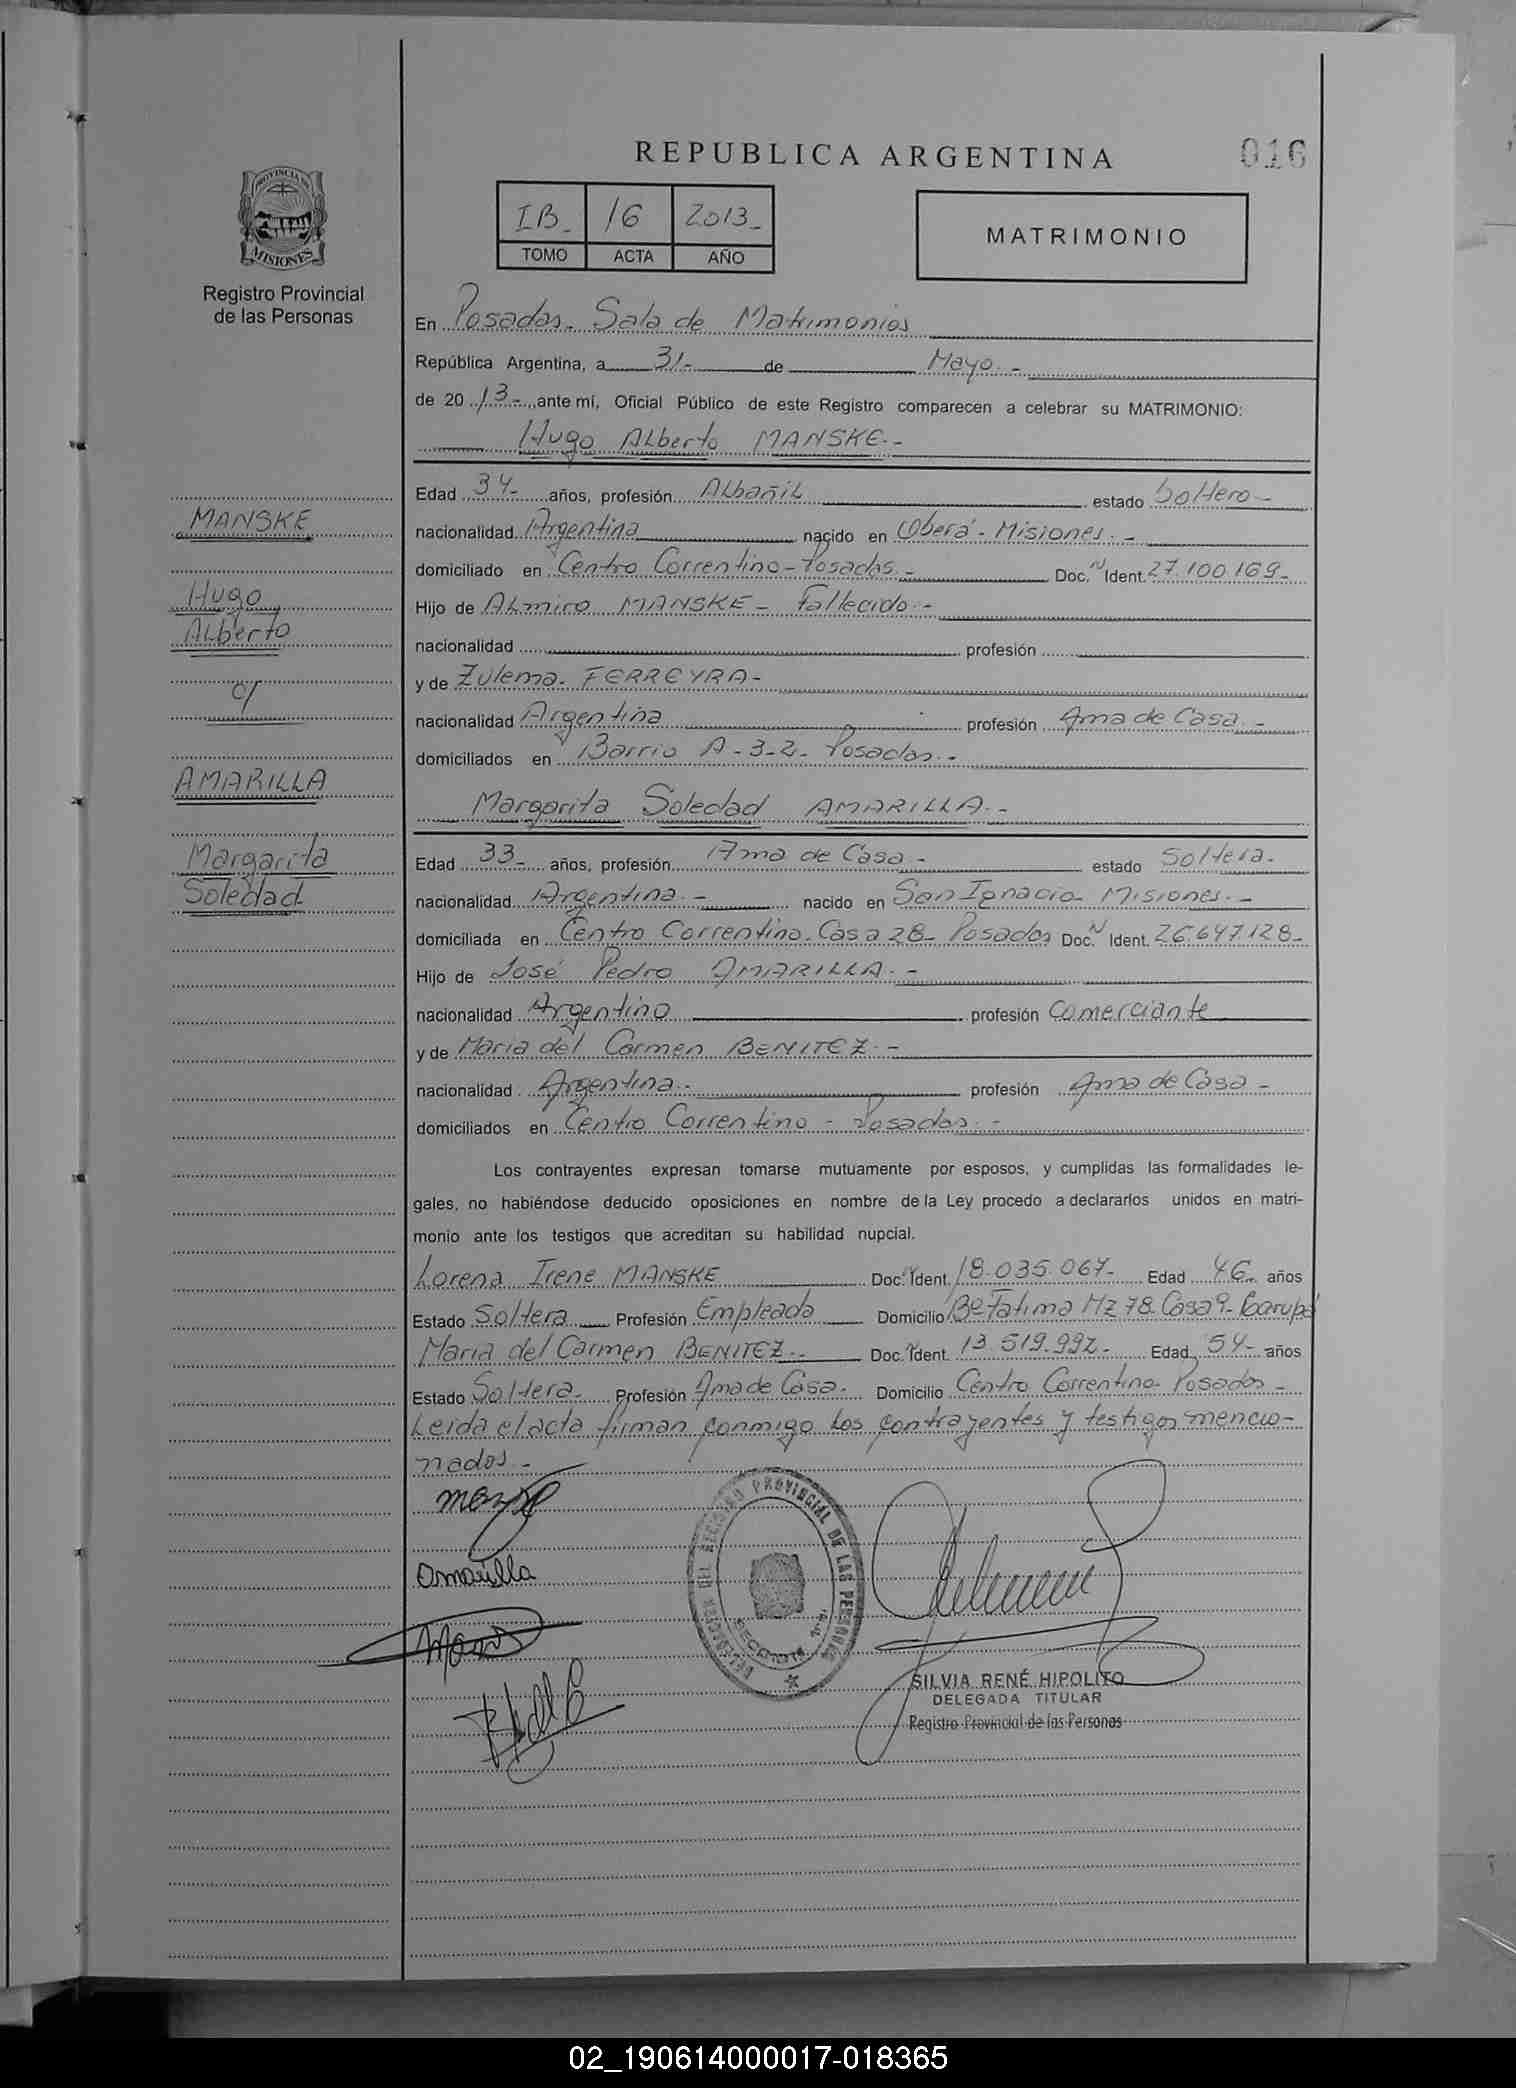 REPUBLICA ARGENTINA
016
PROVINCIA DE
MISIONES
Registro Provincial
de las Personas
IB_ 16 2013_
TOMO ACTA AÑO
MATRIMONIO
En Posadas_ Sala de Matrimonios
República Argentina, a 31- de Mayo. -
de 20 13- ante mí, Oficial Público de este Registro comparecen a celebrar su MATRIMONIO:
Hugo Alberto MANSKE.-
Edad 34- años, profesión Albañil estado Soltero-
nacionalidad Argentina nacido en Oberá - Misiones. -
domiciliado en Centro Correntino-Posadas.- Doc. N Ident. 27.100.169-
Hijo de Almiro MANSKE - Fallecido.-
nacionalidad profesión
y de Zulema FERREYRA-
nacionalidad Argentina profesión Ama de Casa.-
domiciliados en Barrio A-3-2- Posadas.-
Margarita Soledad AMARILLA.-
Edad 33- años, profesión Ama de Casa- estado Soltera-
nacionalidad Argentina.- nacido en San Ignacio Misiones.-
domiciliada en Centro Correntino. Casa 28- Posadas Doc. N Ident. 26.647.128-
Hijo de José Pedro AMARILLA.-
nacionalidad Argentino profesión Comerciante
y de Maria del Carmen BENITEZ.-
nacionalidad Argentina.- profesión Ama de Casa-
domiciliados en Centro Correntino - Posadas.-
Los contrayentes expresan tomarse mutuamente por esposos, y cumplidas las formalidades le-
gales, no habiéndose deducido oposiciones en nombre de la Ley procedo a declararlos unidos en matri-
monio ante los testigos que acreditan su habilidad nupcial.
Lorena Irene MANSKE Doc. Ident. 18.035.067- Edad 46- años
Estado Soltera Profesión Empleada Domicilio Bº Fatima Mz 78 Casa 9- Garupá
Maria del Carmen BENITEZ.- Doc. Ident. 13.519.992- Edad 54- años
Estado Soltera- Profesión Ama de Casa. Domicilio Centro Correntino- Posadas-
Leida el acta firman conmigo los contrayentes y testigos mencio-
nados.-
Amarilla
DEL REGISTRO PROVINCIAL DE LAS PERSONAS
SILVIA RENÉ HIPOLITO
DELEGADA TITULAR
Registro Provincial de las Personas
MANSKE
Hugo
Alberto
c/
AMARILLA
Margarita
Soledad
02_190614000017-018365